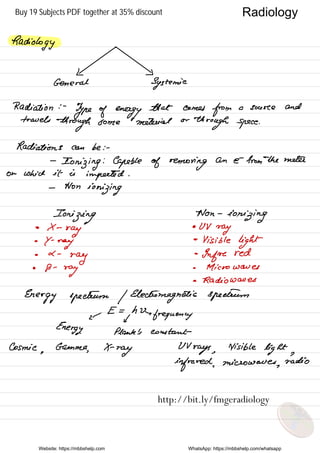 Buy 19 Subjects PDF together at 35% discount
Radiology
Radiology
General Systemic
Radiation :- Type of energy that comes from a source and
travels through some material or through space.
Radiations can be :-
– Ionizing : Capable of removing an e⁻ from the matter
on which it is impacted.
– Non ionizing
Ionizing Non - ionizing
• X-ray • UV ray
• γ-ray • Visible light
• α- ray • Infra red
• β- ray • Microwaves
• Radiowaves
Energy spectrum / Electromagnetic spectrum
E = hν → frequency
Energy Plank's constant
Cosmic, Gamma, X-ray UV rays, Visible light,
infrared, microwaves, radio
http://bit.ly/fmgeradiology
Website: https://mbbshelp.com WhatsApp: https://mbbshelp.com/whatsapp